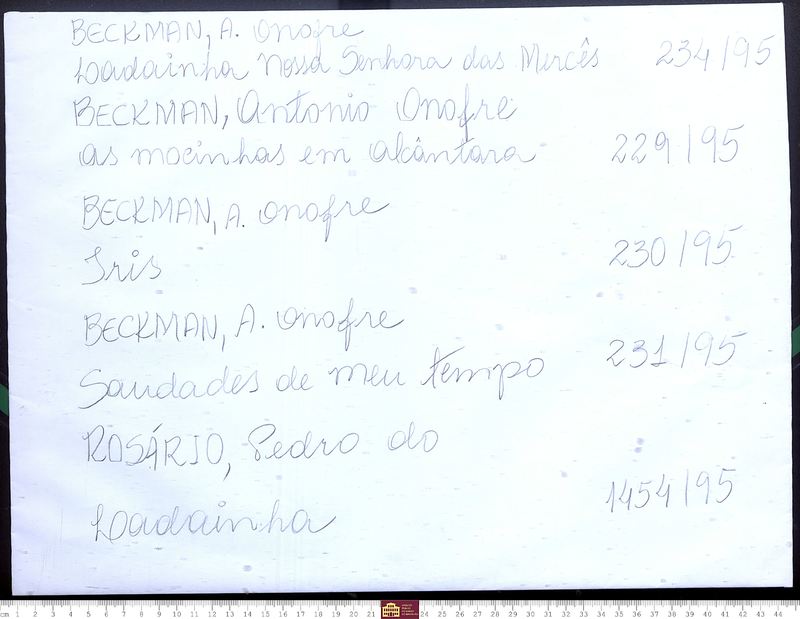 BECKMAN, A. Onofre
Loadainha Nossa Senhora das Mercês 234/95
BECKMAN, Antonio Onofre
As mocinhas em Alcântara 229/95
BECKMAN, A. Onofre
Iris 230/95
BECKMAN, A. Onofre
Saudades de meu tempo 231/95
ROSÁRIO, Pedro do
Loadainha 1454/95
cm 1 2 3 4 5 6 7 8 9 10 11 12 13 14 15 16 17 18 19 20 21 24 25 26 27 28 29 30 31 32 33 34 35 36 37 38 39 40 41 42 43 44